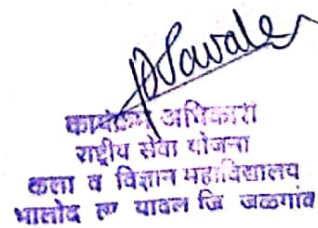 कार्यक्रम अधिकारी
राष्ट्रीय सेवा योजना
कला व विज्ञान महाविद्यालय
भालोद ता यावल जि जळगांव